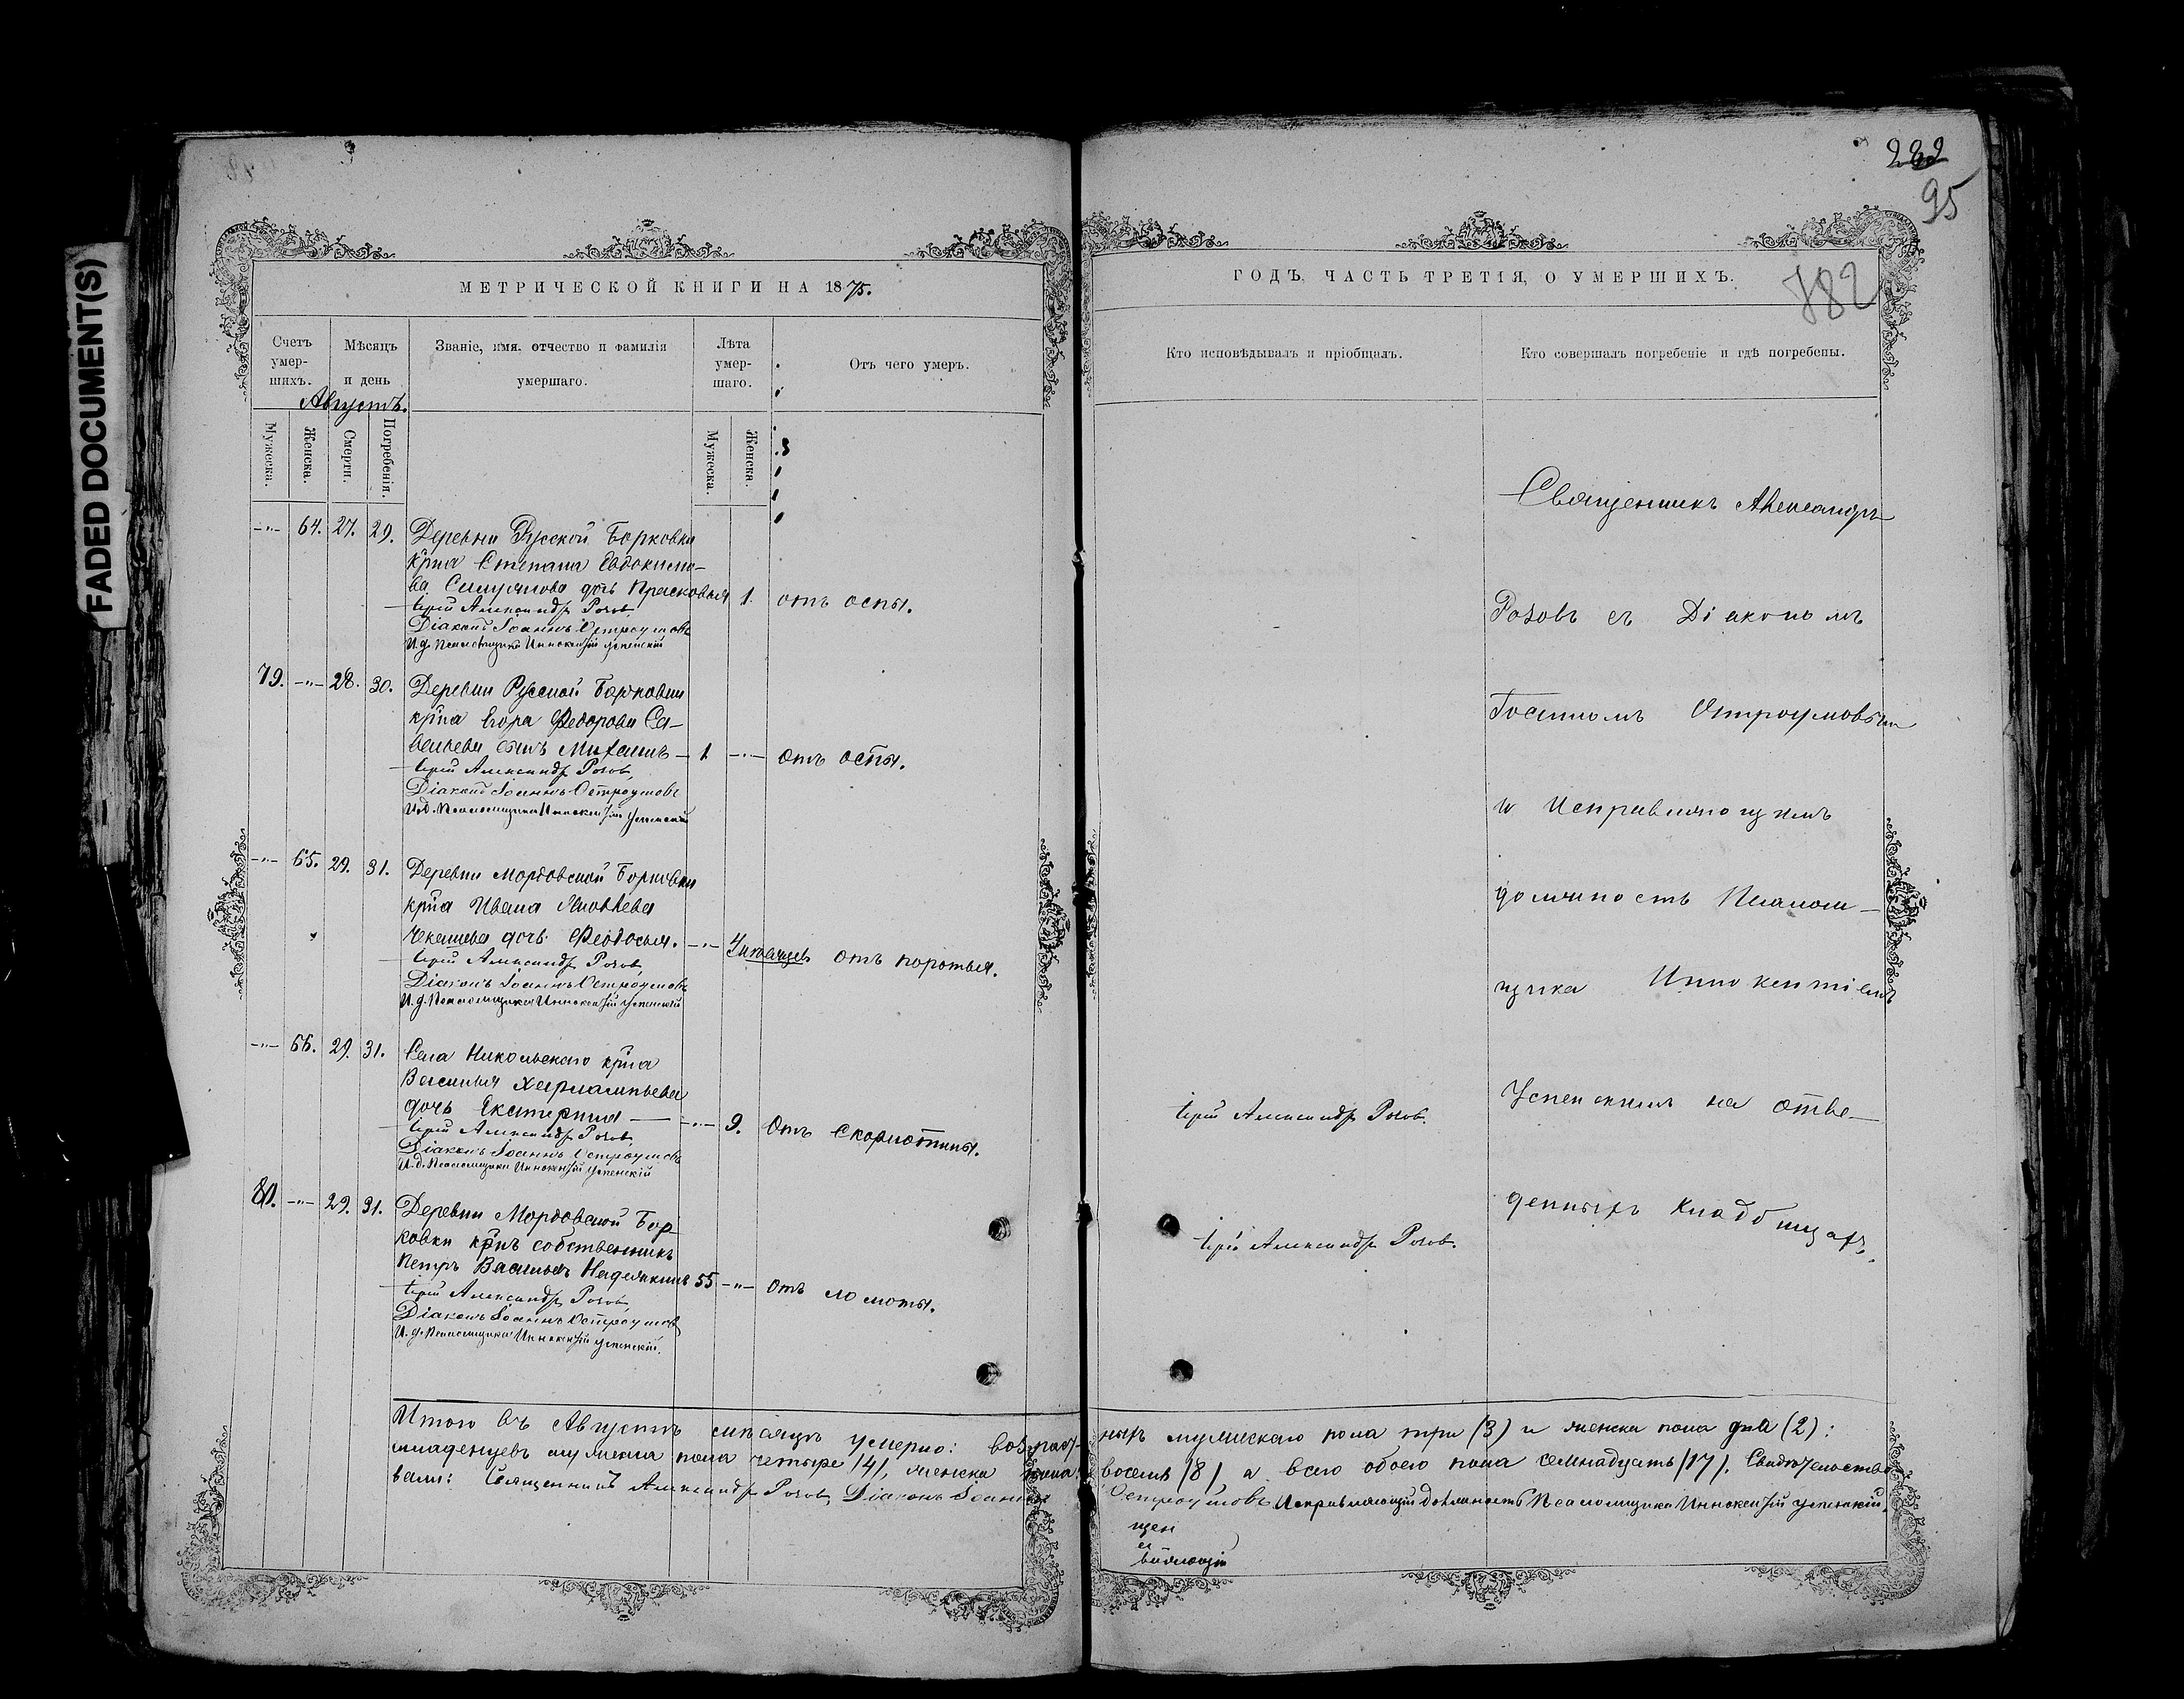 FADED DOCUMENT(S)
282
95
782
МЕТРИЧЕСКОЙ КНИГИ НА 1875.
Счетъ умер-шихъ.
Мѣсяцъ и день
Августъ.
Званіе, имя, отчество и фамилія умершаго.
Лѣта умер-шаго.
Отъ чего умеръ.
Мужеска.
Женска.
Смерти.
Погребенія.
Мужеска.
Женска.
-"- 64. 27. 29. Деревни Русской Борковки
крⷭ҇на Степана Евдокимо-
ва дочь Прасковья 1. отъ оспы.
Іерей Александръ Розовъ
Діаконъ Іоаннъ Остроумовъ
И. д. Псаломщика Иннокентій Успенскій
79. -"- 28. 30. Деревни Русской Борковки
крⷭ҇на Егора Федорова Са-
вельева сынъ Михаилъ - 1 -"- отъ оспы.
Іерей Александръ Розовъ,
Діаконъ Іоаннъ Остроумовъ
И.д. Псаломщика Иннокентій Успенскій
-"- 65. 29. 31. Деревни Мордовской Борковки
крⷭ҇на Ивана Яковлева
дочь Феодосья. -"- 4 отъ
Іерей Александръ Розовъ,
Діаконъ Іоаннъ Остроумовъ
И. д. Псаломщика Иннокентій Успенскій
-"- 66. 29. 31. Села Никольскаго крⷭ҇на
Василья Харлампьева
дочь Екатерина -"- 9. Отъ скорлотины.
Іерей Александръ Розовъ
Діаконъ Іоаннъ Остроумовъ
И. д. Псаломщика Иннокентій Успенскій
80. -"- 29. 31. Деревни Мордовской Бор-
ковки крⷭ҇нъ собственникъ
Петръ Васильевъ 55 -"- Отъ ломоты.
Іерей Александръ Розовъ,
Діаконъ Іоаннъ Остроумовъ
И. д. Псаломщика Иннокентій Успенскій.
Итого въ Августѣ мѣсяцѣ умерло: возраст-
младенцевъ мужеска пола четыре /4/, женска пола
вали: Священникъ Александръ Розовъ, Діаконъ Іоаннъ
ГОДЪ, ЧАСТЬ ТРЕТІЯ, О УМЕРШИХЪ.
Кто исповѣдывалъ и пріобщалъ.
Кто совершалъ погребеніе и гдѣ погребены.
Священникъ Александръ
Розовъ съ Діакономъ
Іоанномъ Остроумовымъ
и Исправляющимъ
должность Псалом-
щика Иннокентіемъ
Іерей Александръ Розовъ.
Успенскимъ на отве-
Іерей Александръ Розовъ.
денныхъ кладбищахъ.
ныхъ мужескаго пола три (3) и женска пола два (2):
восемь /8/, а всего обоего пола семнадцать /17/. Свидѣтельство-
Остроумовъ Исправляющій должность Псаломщика Иннокентій Успенскій.